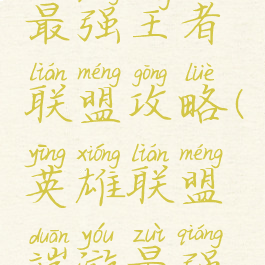 最强王者
lián méng gōng lüè
联盟攻略(
yīng xióng lián méng
英雄联盟
duān yóu zuì qiáng
端游最强